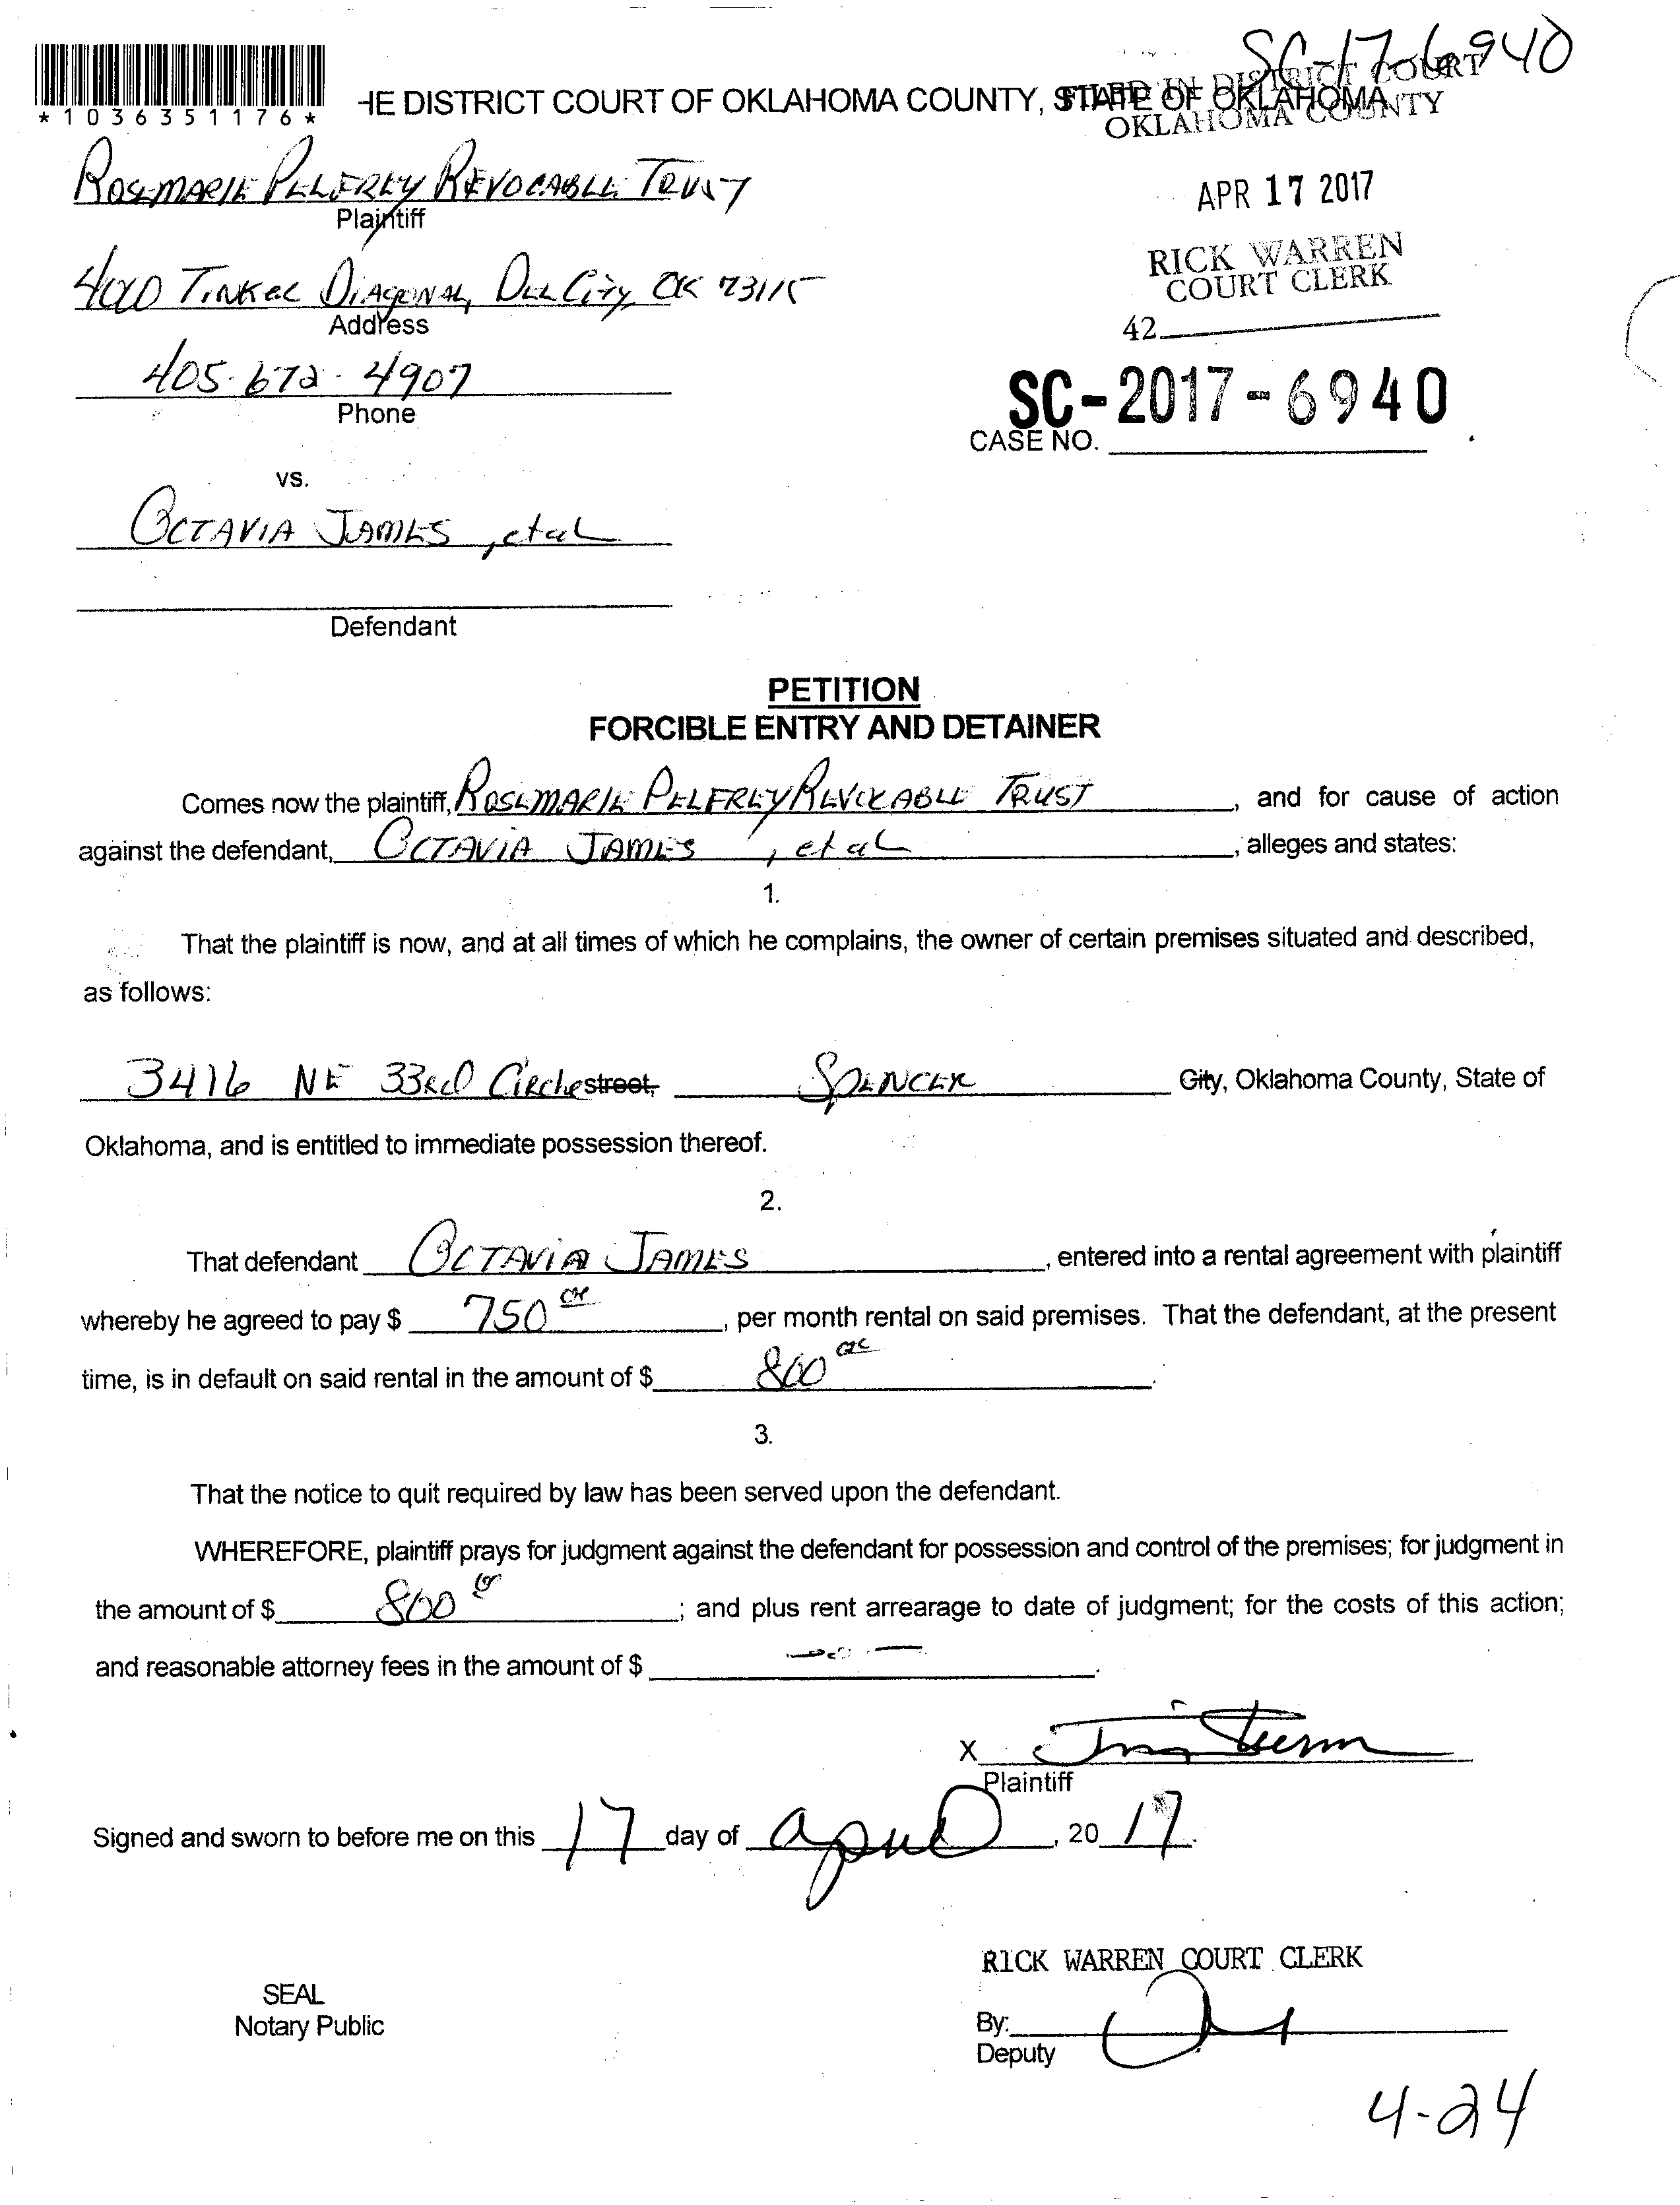 SC-17-6940
*1036351176*
HE DISTRICT COURT OF OKLAHOMA COUNTY, STATE OF OKLAHOMA
FILED IN DISTRICT COURT
OKLAHOMA COUNTY
ROSEMARIE PELFREY REVOCABLE TRUST
Plaintiff
APR 17 2017
RICK WARREN
COURT CLERK
4010 TINKER DIAGONAL, DEL CITY, OK 73115
Address
42
405-672-4907
Phone
SC-2017-6940
CASE NO.
vs.
OCTAVIA JAMES, et al
Defendant
PETITION
FORCIBLE ENTRY AND DETAINER
Comes now the plaintiff, ROSEMARIE PELFREY REVOCABLE TRUST, and for cause of action
against the defendant, OCTAVIA JAMES, et al, alleges and states:
1.
That the plaintiff is now, and at all times of which he complains, the owner of certain premises situated and described,
as follows:
3416 NE 33RD Circle street, SPENCER City, Oklahoma County, State of
Oklahoma, and is entitled to immediate possession thereof.
2.
That defendant OCTAVIA JAMES, entered into a rental agreement with plaintiff
whereby he agreed to pay $ 750 00, per month rental on said premises. That the defendant, at the present
time, is in default on said rental in the amount of $ 800 00.
3.
That the notice to quit required by law has been served upon the defendant.
WHEREFORE, plaintiff prays for judgment against the defendant for possession and control of the premises; for judgment in
the amount of $ 800 00; and plus rent arrearage to date of judgment; for the costs of this action;
and reasonable attorney fees in the amount of $ .
X
Plaintiff
Signed and sworn to before me on this 17 day of April, 2017.
RICK WARREN COURT CLERK
SEAL
Notary Public
By:
Deputy
4-24